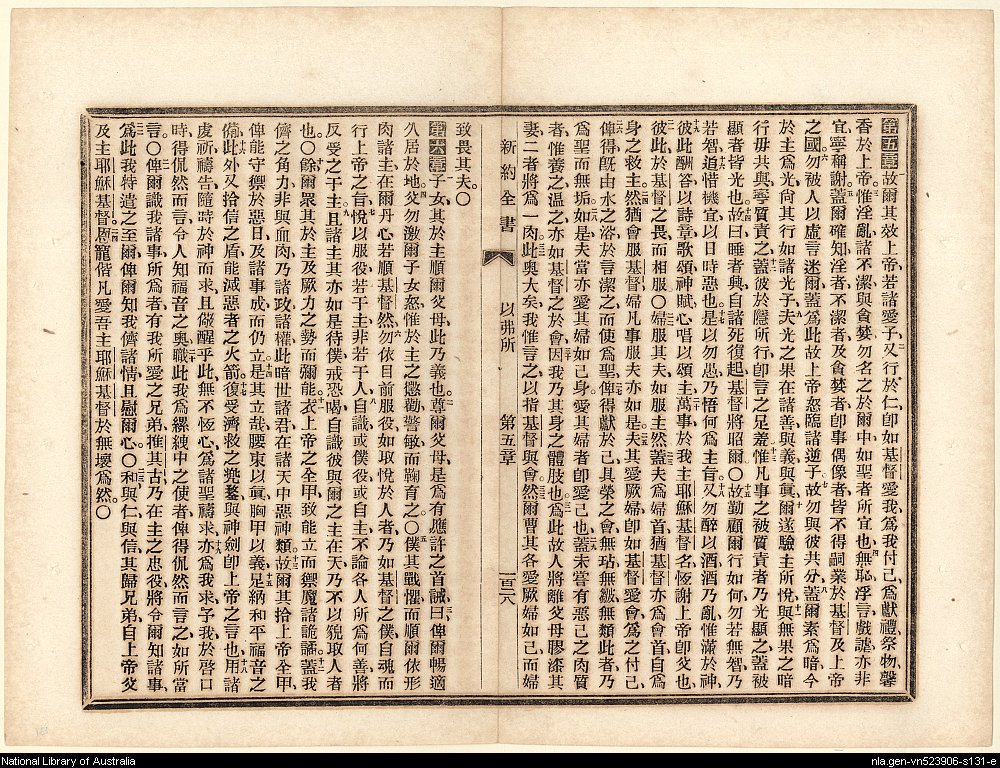 第五章故爾其效上帝若諸愛子又行於仁卽如基督愛我為我付己為獻禮祭物馨
香於上帝惟淫亂諸不潔與貪婪勿名之於爾中如聖者所宜也無恥浮言戲謔亦非
宜寧稱謝蓋爾確知淫者不潔者及貪婪者卽事偶像者皆不得嗣業於基督及上帝
之國勿被人以虛言迷爾蓋為此故上帝怒臨諸逆子故勿與彼共分蓋爾素為暗今
於主為光尙其行如諸光子夫光之果在諸善與義與眞爾遂驗主所悅與無果之暗
行毋共與寧質責之蓋彼於隱所行卽言之足羞惟凡事之被質責者乃光顯之蓋被
顯者皆光也故曰睡者興自諸死復起基督將昭爾〇故勤顧爾行如何勿若無智乃
若智道惜機宜以日時惡也是以勿愚乃悟何為主旨又勿醉以酒酒乃亂惟滿於神
彼此酬答以詩章歌頌神賦心唱以頌主萬事於我主耶穌基督名恆謝上帝卽父也
彼此於基督之畏而相服〇婦服其夫如服主然蓋夫為婦首猶基督亦為會首自為
身之救主然猶會服基督婦凡事服夫亦如是夫其愛厥婦卽如基督愛會為之付己
俾得旣由水之浴於言潔之而使為聖俾得獻於己其榮之會無玷無皺無類此者乃
為聖而無垢如是夫當亦愛其婦如己身愛其婦者卽愛己也蓋未嘗有惡己之肉質
者惟養之溫之亦如基督之於會因我乃其身之體肢也為此故人將離父母膠漆其
妻二者將為一肉此奧大矣我惟言之以指基督與會然爾曹其各愛厥婦如己而婦
新約全書 以弗所 第五章 一百二八
致畏其夫〇
第六章子女其於主順爾父母此乃義也尊爾父母是為有應許之首誡曰俾爾暢適
久居於地父勿激爾子女怒惟於主之懲勸警敏而鞠育之〇僕其戰懼而順爾依形
肉諸主在爾丹心若順基督然勿依目前服役如取悅於人者乃如基督之僕自魂而
行上帝之旨悅以服役若于主非若于人自識或僕役或自主不論各人所為何善將
反受之于主且諸主其亦如是待僕戒恐喝自識彼與爾之主在天乃不以貌取人者
也〇餘爾眾其於主及厥力之勢而彌能衣上帝之全甲致能立而禦魔諸詭謠蓋我
儕之角力非與血肉乃諸政諸權此暗世諸君在諸天中惡神類故爾其拾上帝全甲
俾能守禦於惡日及諸事成而仍立是其立哉腰束以眞胸甲以義足納和平福音之
備此外又拾信之盾能滅惡者之火箭復受濟救之兜鍪與神劍卽上帝之言也用諸
虔祈禱告隨時於神而求且儆醒乎此無不恆心為諸聖禱求亦為我求予我於啓口
時得侃然而言令人知福音之奧職此我為縲絏中之使者俾得侃然而言之如所當
言〇俾爾識我諸事所為者有我所愛之兄弟推其古乃在主之忠役將令爾知諸事
為此我特遣之至爾俾爾知我儕諸情且慰爾心〇和與仁與信其歸兄弟自上帝父
及主耶穌基督恩寵偕凡愛吾主耶穌基督於無壞為然〇
National Library of Australia
nla.gen-vn523906-s131-e